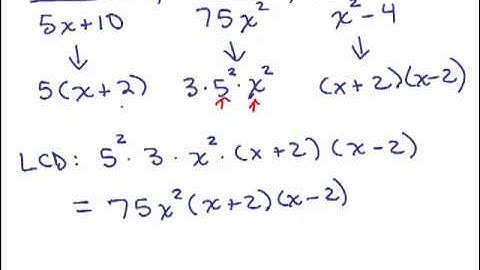 5x+10 75x² x²-4
5(x+2) 3·5²·x² (x+2)(x-2)
LCD: 5²·3·x²·(x+2)(x-2)
= 75x²(x+2)(x-2)